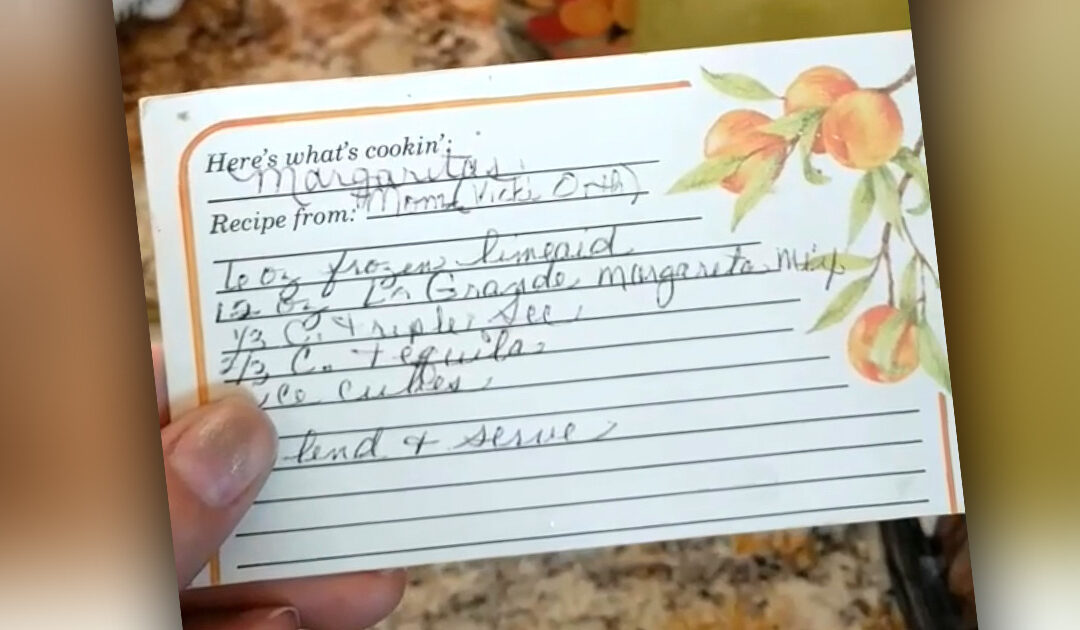 Here's what's cookin':
Margaritas
Recipe from: Mom (Vicki Orth)
6 oz frozen limeaid
12 oz La Grande margareta mix
1/3 C. triple sec
2/3 C. tequila
ice cubes
lend & serve